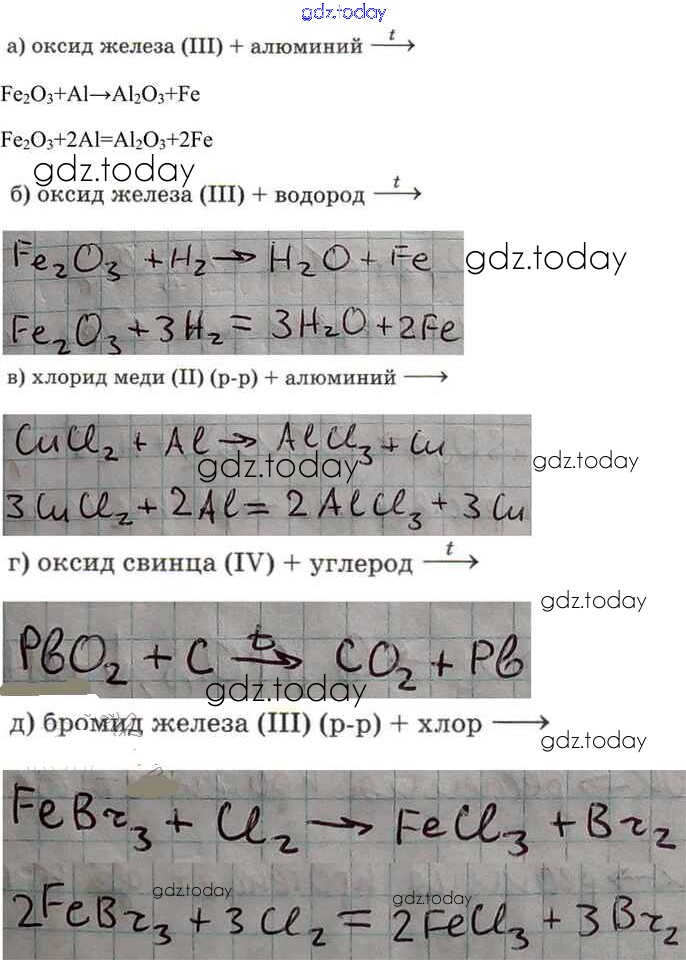 gdz.today
а) оксид железа (III) + алюминий —t→
Fe₂O₃+Al→Al₂O₃+Fe
Fe₂O₃+2Al=Al₂O₃+2Fe
gdz.today
б) оксид железа (III) + водород —t→
Fe₂O₃ + H₂ → H₂O + Fe
gdz.today
Fe₂O₃ + 3H₂ = 3H₂O + 2Fe
в) хлорид меди (II) (р-р) + алюминий ⟶
CuCl₂ + Al → AlCl₃ + Cu
gdz.today
gdz.today
3CuCl₂ + 2Al = 2AlCl₃ + 3Cu
г) оксид свинца (IV) + углерод —t→
gdz.today
PbO₂ + C —t→ CO₂ + Pb
gdz.today
д) бромид железа (III) (р-р) + хлор ⟶
gdz.today
FeBr₃ + Cl₂ → FeCl₃ + Br₂
gdz.today
gdz.today
2FeBr₃ + 3Cl₂ = 2FeCl₃ + 3Br₂